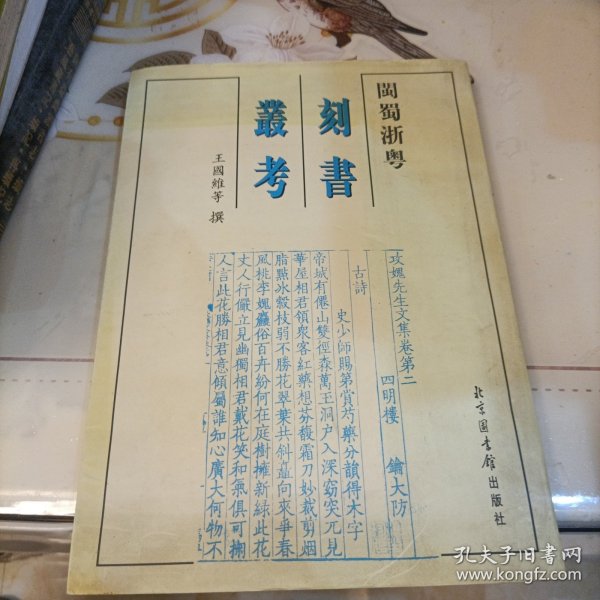 閩蜀浙粵
刻書
叢考
王國維等 撰
攻媿先生文集卷第二
四明樓 鑰大防
古詩
史少師賜第賞芍藥分韻得木字
帝城有儒山雙徑森萬玉洞户入深窈突兀見
華屋相君領衆客紅藥想芬馥霜刀妙裁剪烟
脂點冰縠枝弱不勝花翠葉共斜矗向來爭春
風桃李媿麤俗百卉紛何在庭樹擁新緑此花
丈人行儼立見幽獨相君戴花笑和氣俱可掬
人言此花勝相君意傾屬誰知心廣大何物不
北京圖書館出版社
孔夫子旧书网
www.kongfz.com